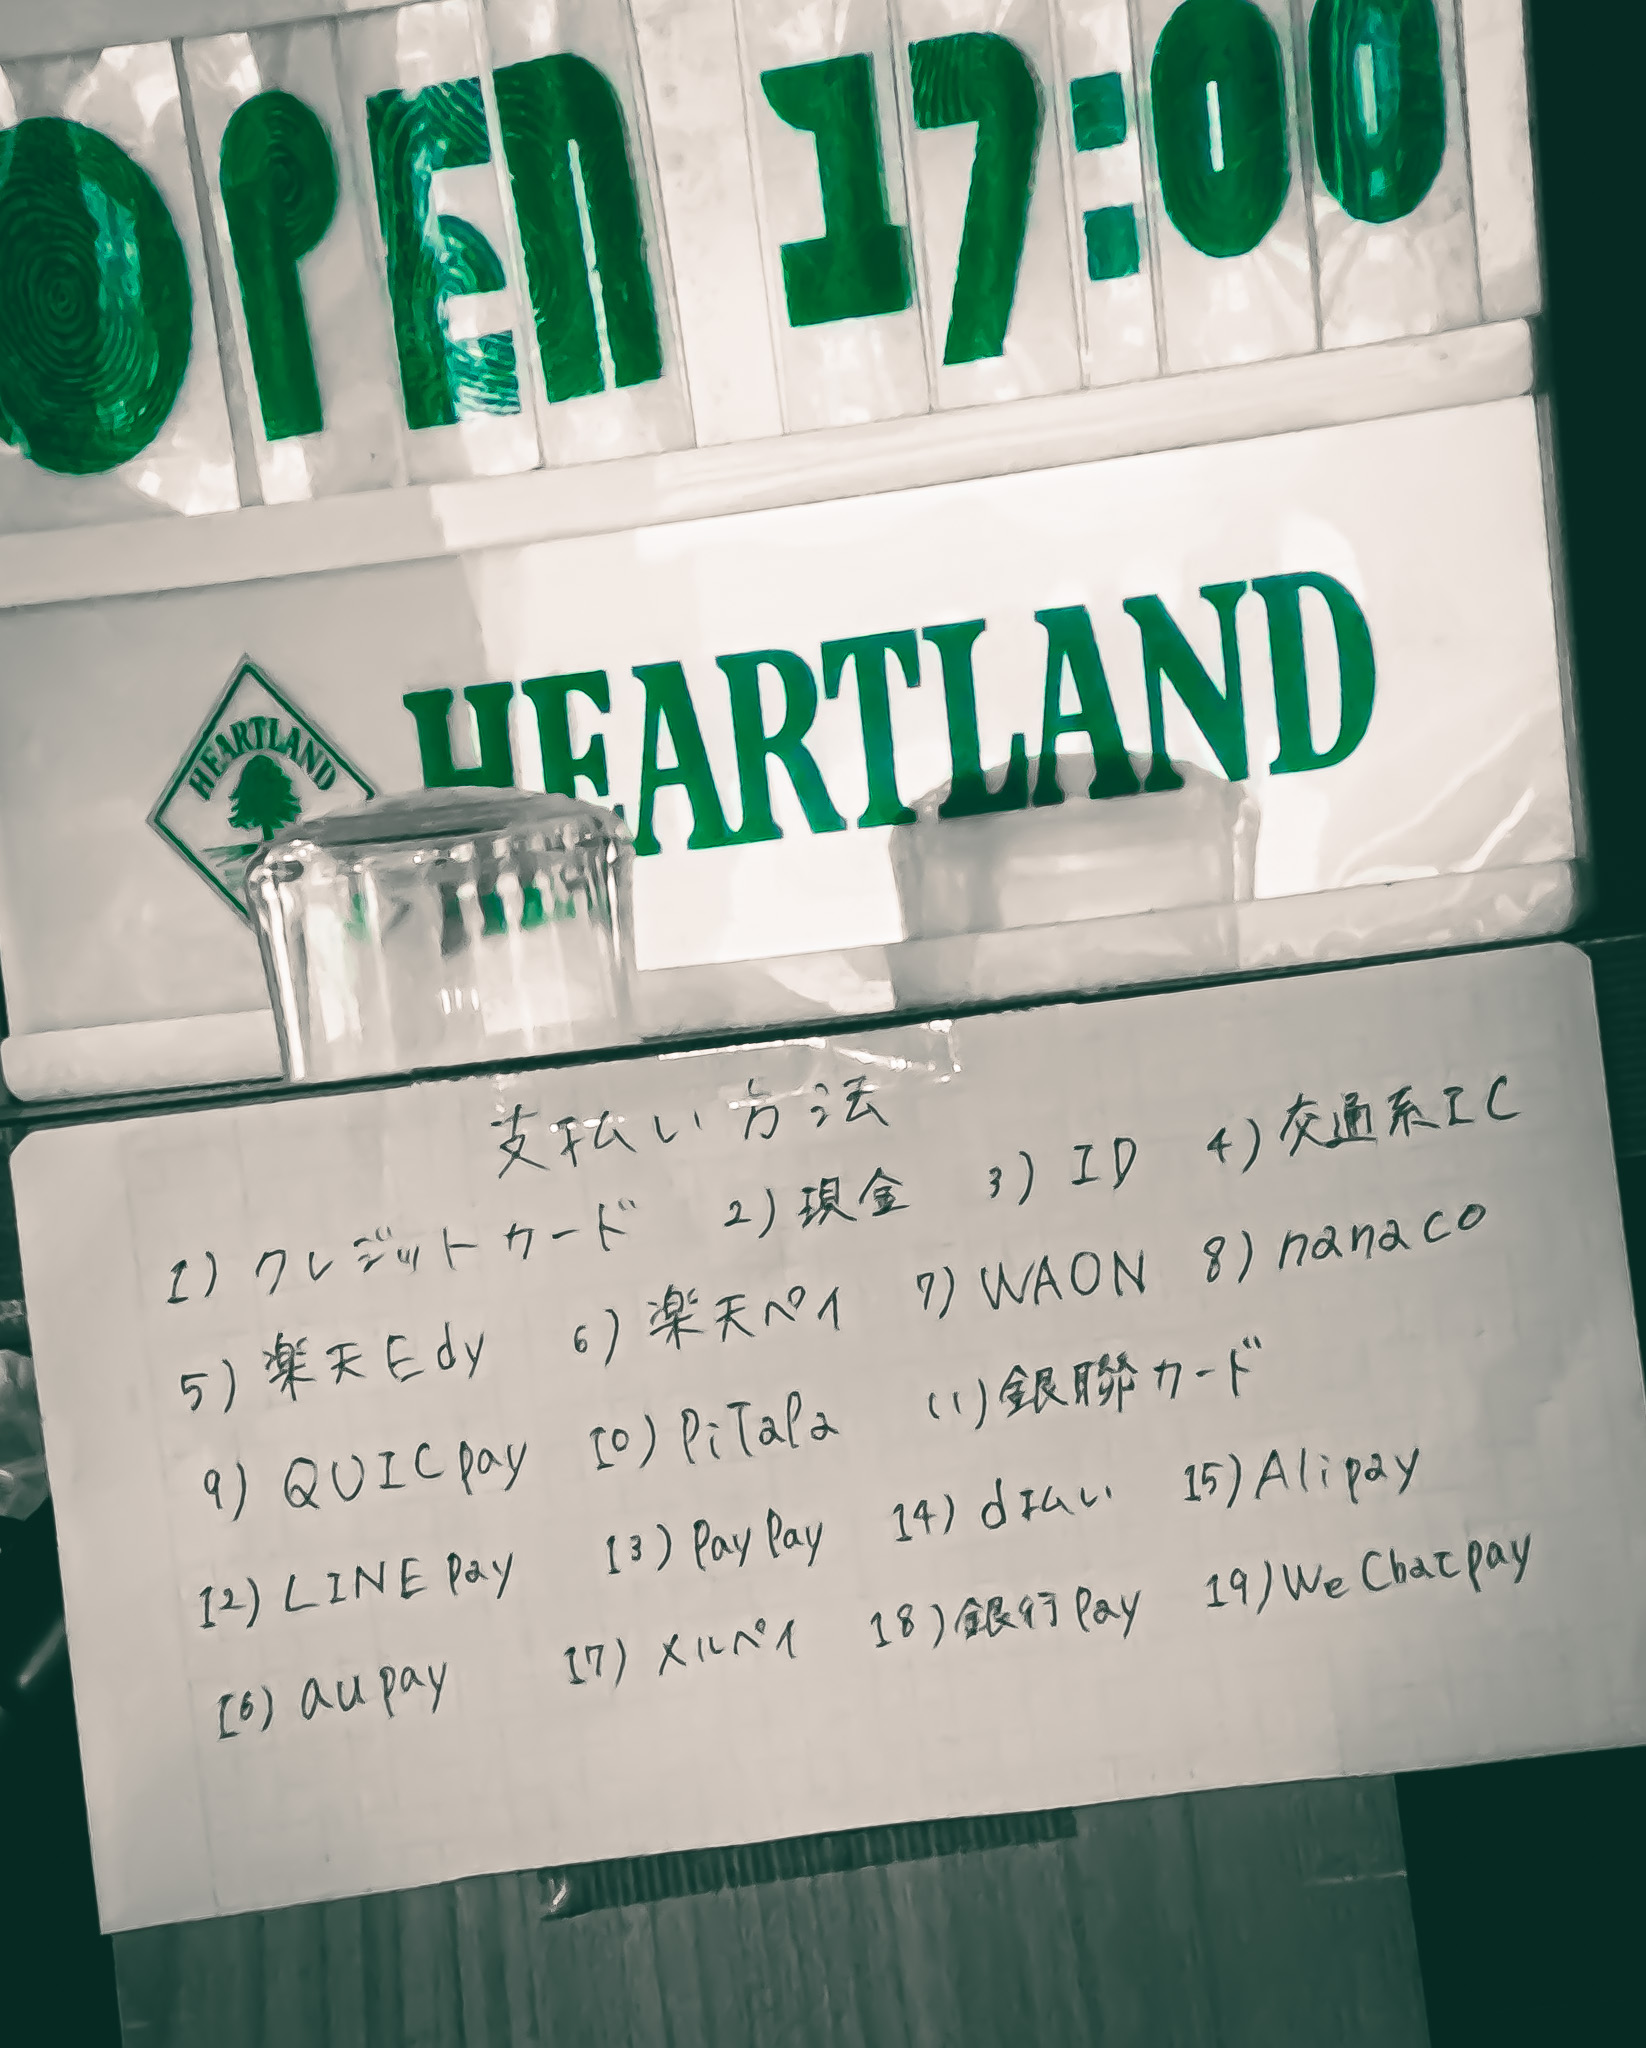 OPEN 17:00
HEARTLAND
HEARTLAND
支払い方法
1) クレジットカード 2) 現金 3) ID 4) 交通系IC
5) 楽天Edy 6) 楽天ペイ 7) WAON 8) nanaco
9) QUICpay 10) PiTaPa 11) 銀聯カード
12) LINE Pay 13) PayPay 14) d払い 15) Alipay
16) au pay 17) メルペイ 18) 銀行Pay 19) WeChatpay